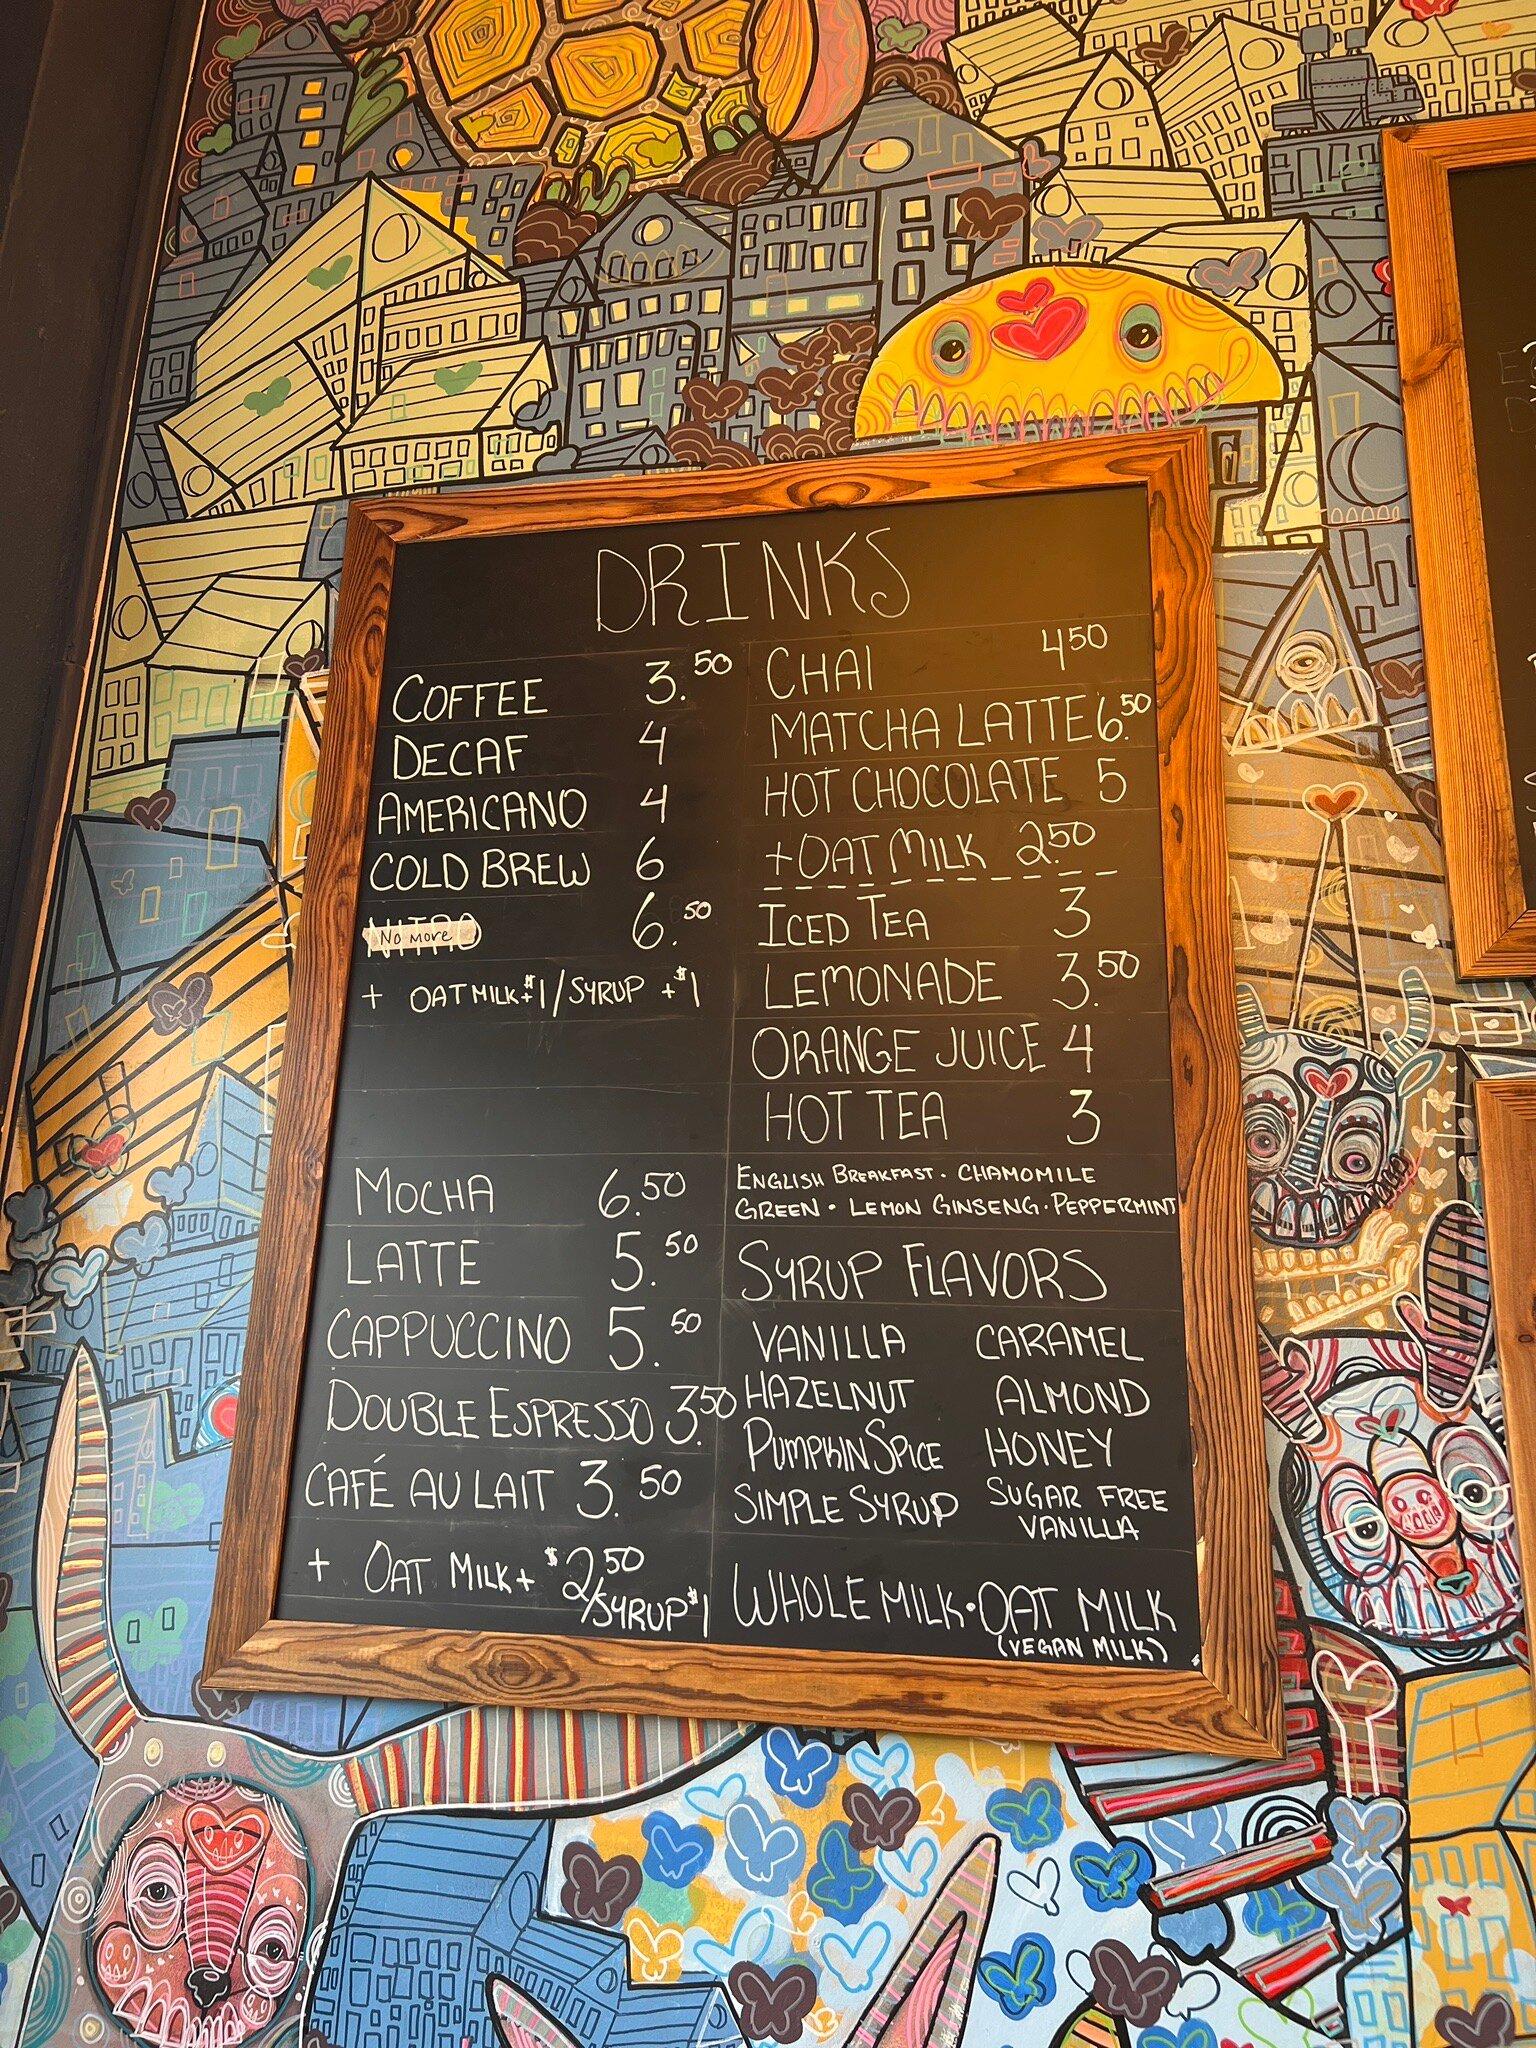 DRINKS
COFFEE 3.50
DECAF 4
AMERICANO 4
COLD BREW 6
NITRO No More 6.50
+ OAT MILK +$1/SYRUP +$1
MOCHA 6.50
LATTE 5.50
CAPPUCCINO 5.50
DOUBLE ESPRESSO 3.50
CAFÉ AU LAIT 3.50
+ OAT MILK + $2.50
/SYRUP $1
CHAI 4.50
MATCHA LATTE 6.50
HOT CHOCOLATE 5
+OAT MILK 2.50
ICED TEA 3
LEMONADE 3.50
ORANGE JUICE 4
HOT TEA 3
ENGLISH BREAKFAST · CHAMOMILE
GREEN · LEMON GINSENG · PEPPERMINT
SYRUP FLAVORS
VANILLA CARAMEL
HAZELNUT ALMOND
PUMPKIN SPICE HONEY
SIMPLE SYRUP SUGAR FREE
VANILLA
WHOLE MILK · OAT MILK
(VEGAN MILK)